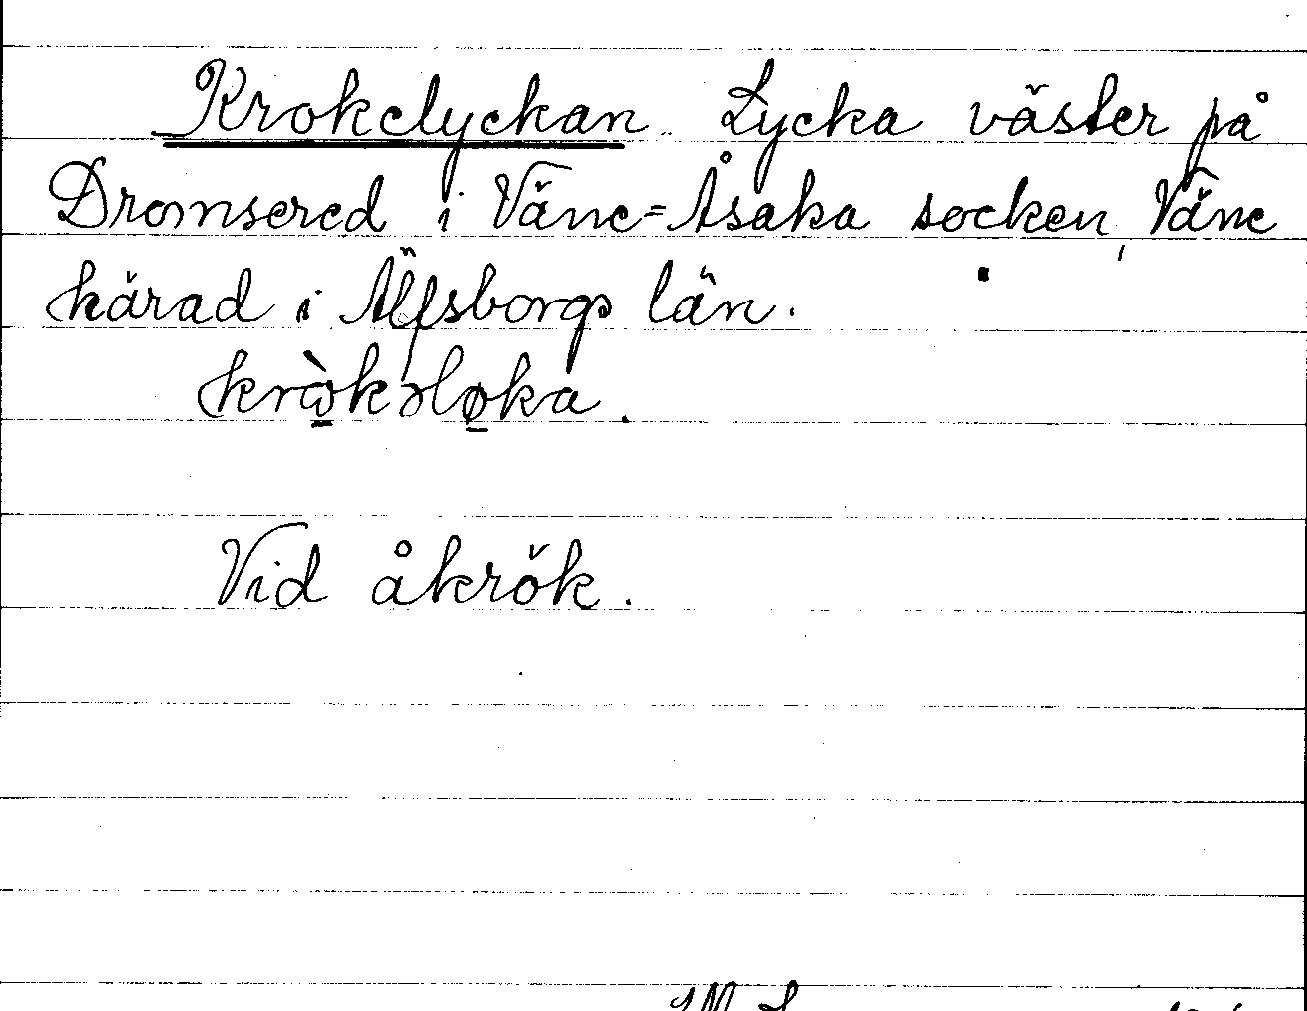 Krokelyckan. Lycka väster på
Dromsered i Väne-Åsaka socken, Väne
härad i Älfsborgs län.
krὼkəløka.
Vid åkrök.